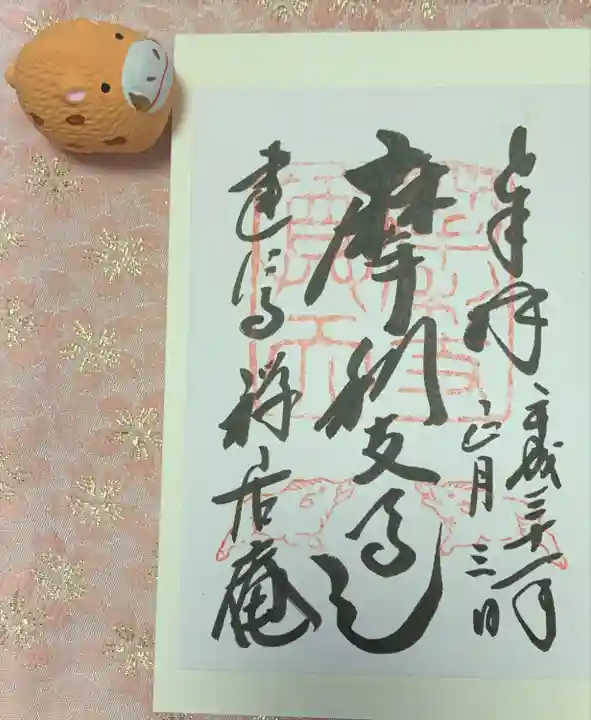 奉拝
平成三十一年
正月三日
摩利支尊天
建仁寺禅居庵